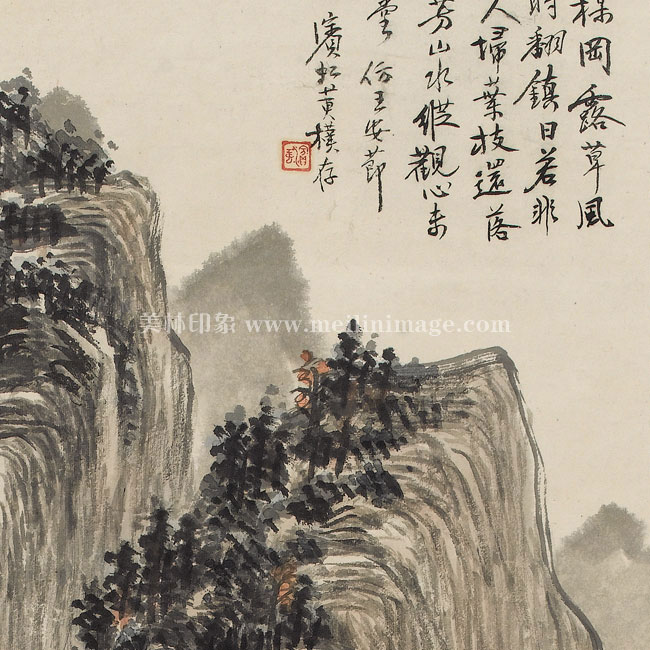 株岡露草風
時翻鎮日若非
人掃葉枝還落
芳山水縱觀心未
堂仿王安節
濱虹黃樸存
美林印象 www.meilinimage.com